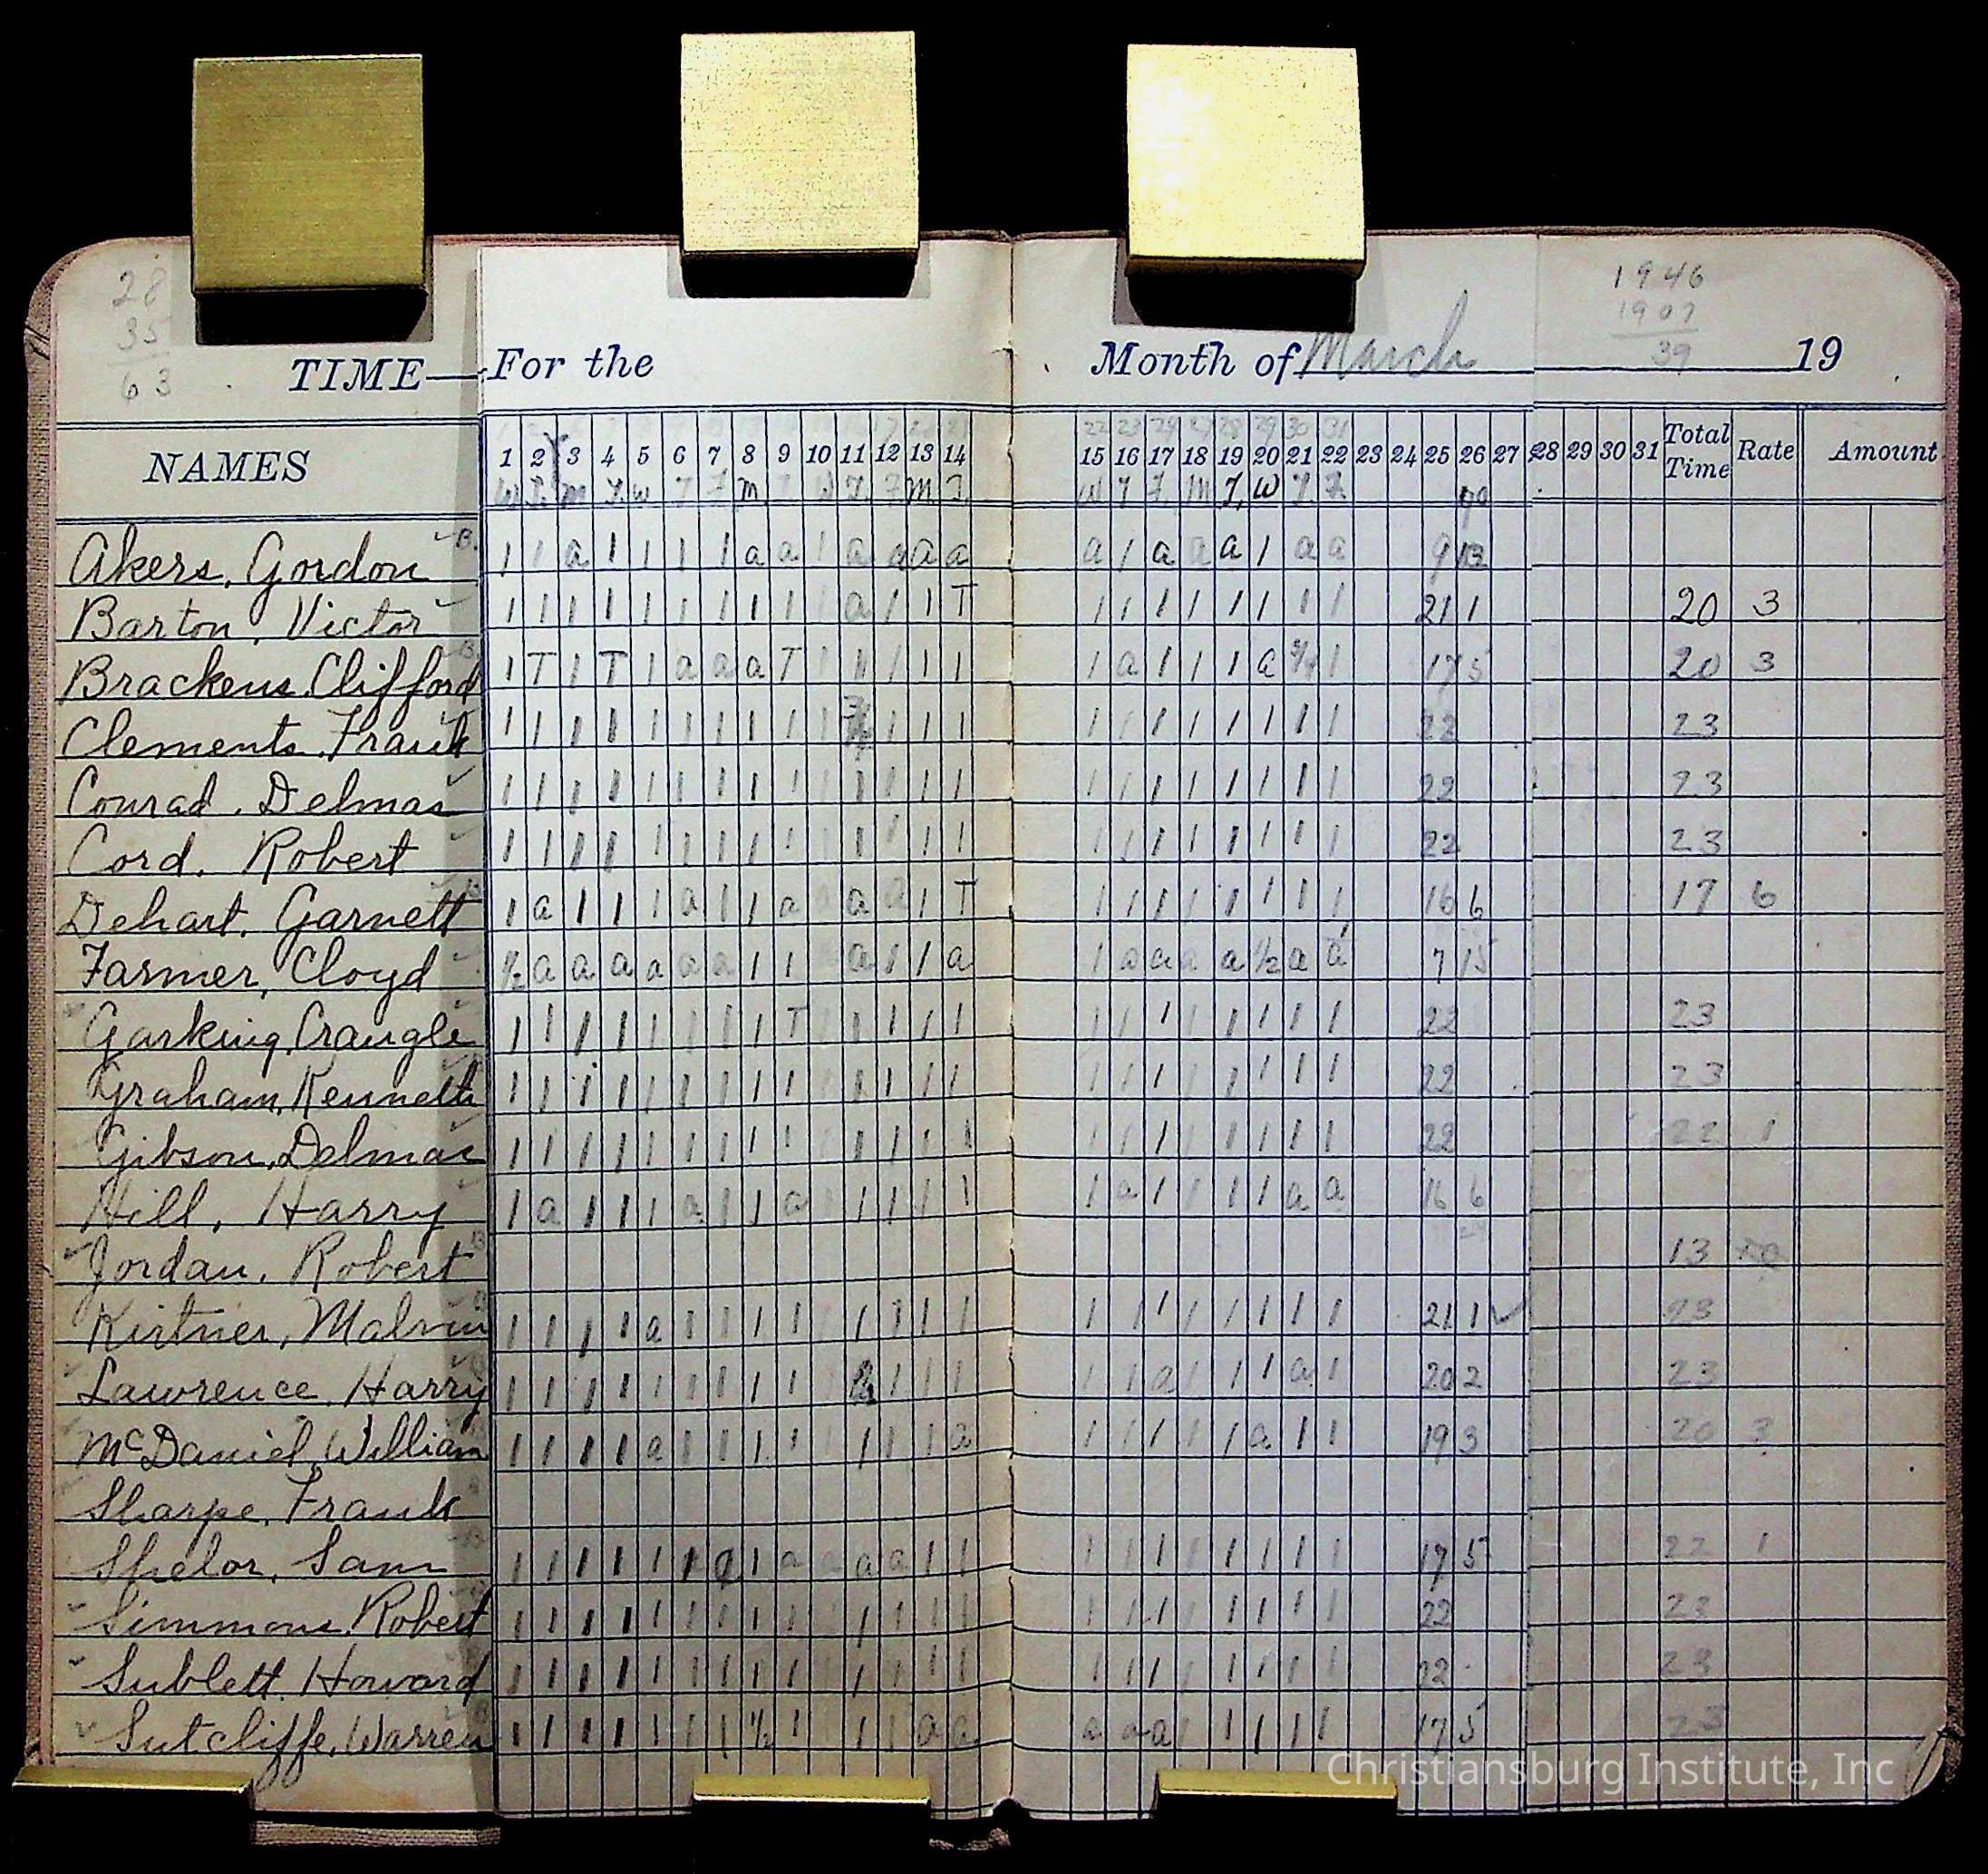 28
35
63
1946
1907
39
TIME— For the Month of March 19
NAMES 1 2 3 4 5 6 7 8 9 10 11 12 13 14 15 16 17 18 19 20 21 22 23 24 25 26 27 28 29 30 31 Total Time Rate Amount
W T. M T. W T F M T W T. F M T. W T F. M T. W T F.
Akers, Gordon 1 1 a 1 1 1 1 1 a a 1 a a a a a 1 a a a 1 a a 9 13
Barton, Victor 1 1 1 1 1 1 1 1 1 1 a 1 1 T 1 1 1 1 1 1 1 1 21 1 20 3
Brackens, Clifford 1 T 1 T 1 a a a T 1 1 1 1 1 1 a 1 1 1 a 1 17 5 20 3
Clements, Frank 1 1 1 1 1 1 1 1 1 1 1 1 1 1 1 1 1 1 1 1 1 22 23
Conrad, Delmas 1 1 1 1 1 1 1 1 1 1 1 1 1 1 1 1 1 1 1 1 1 22 23
Cord, Robert 1 1 1 1 1 1 1 1 1 1 1 1 1 1 1 1 1 1 1 1 1 22 23
Dehart, Garnett 1 a 1 1 1 a 1 1 a a a 1 T 1 1 1 1 1 1 1 1 16 6 17 6
Farmer, Cloyd ½ a a a a a a 1 1 a 1 1 a 1 a a a a ½ a a 7 15
Garking, Craugle 1 1 1 1 1 1 1 1 T 1 1 1 1 1 1 1 1 1 1 1 1 22 23
Graham, Kenneth 1 1 1 1 1 1 1 1 1 1 1 1 1 1 1 1 1 1 1 1 1 22 23
Gibson, Delmas 1 1 1 1 1 1 1 1 1 1 1 1 1 1 1 1 1 1 1 1 1 22 22 1
Hill, Harry 1 a 1 1 1 a 1 1 a 1 1 1 1 1 a 1 1 1 1 a a 16 6
Jordan, Robert 13
Kirtner, Malvin 1 1 1 1 a 1 1 1 1 1 1 1 1 1 1 1 1 1 1 1 1 21 1 ✓ 23
Lawrence, Harry 1 1 1 1 1 1 1 1 1 ½ 1 1 1 1 1 a 1 1 1 a 1 20 2 23
McDaniel, William 1 1 1 1 a 1 1 1 1 1 1 1 a 1 1 1 1 1 a 1 1 19 3 20 3
Sharpe, Frank
Shelor, Sam 1 1 1 1 1 1 a 1 a a a a 1 1 1 1 1 1 1 1 1 1 17 5 22 1
Simmons, Robert 1 1 1 1 1 1 1 1 1 1 1 1 1 1 1 1 1 1 1 1 1 22 23
Sublett, Howard 1 1 1 1 1 1 1 1 1 1 1 1 1 1 1 1 1 1 1 1 1 22 23
Sutcliffe, Warren 1 1 1 1 1 1 1 ½ 1 1 1 a a a a a 1 1 1 1 1 17 5 23
Christiansburg Institute, Inc